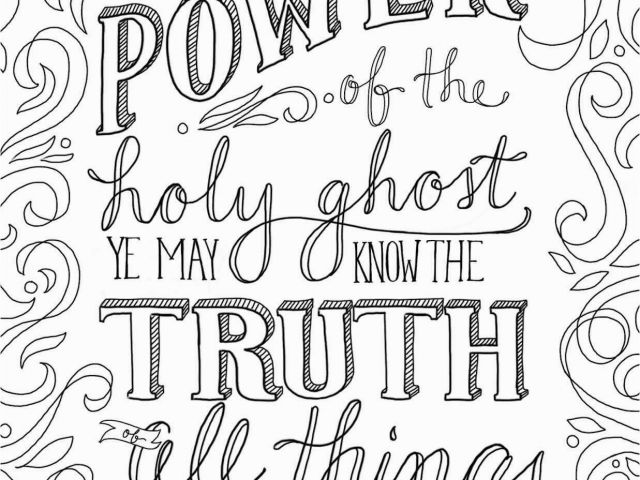 POWER
of the
holy ghost
YE MAY KNOW THE
TRUTH
of all things